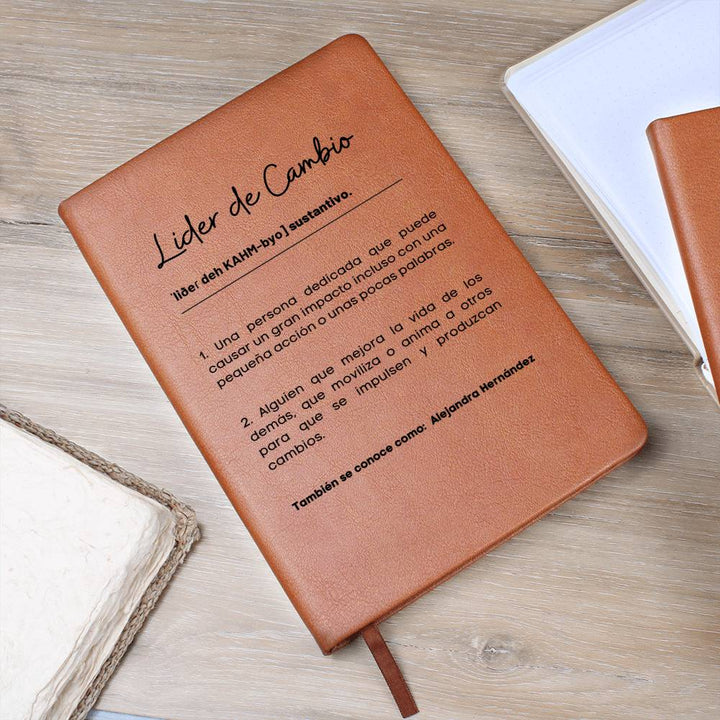 Lider de Cambio
'liðer deh KAHM-byo ] sustantivo.
1. Una persona dedicada que puede
causar un gran impacto incluso con una
pequeña acción o unas pocas palabras.
2. Alguien que mejora la vida de los
demás, que moviliza o anima a otros
para que se impulsen y produzcan
cambios.
También se conoce como: Alejandra Hernández